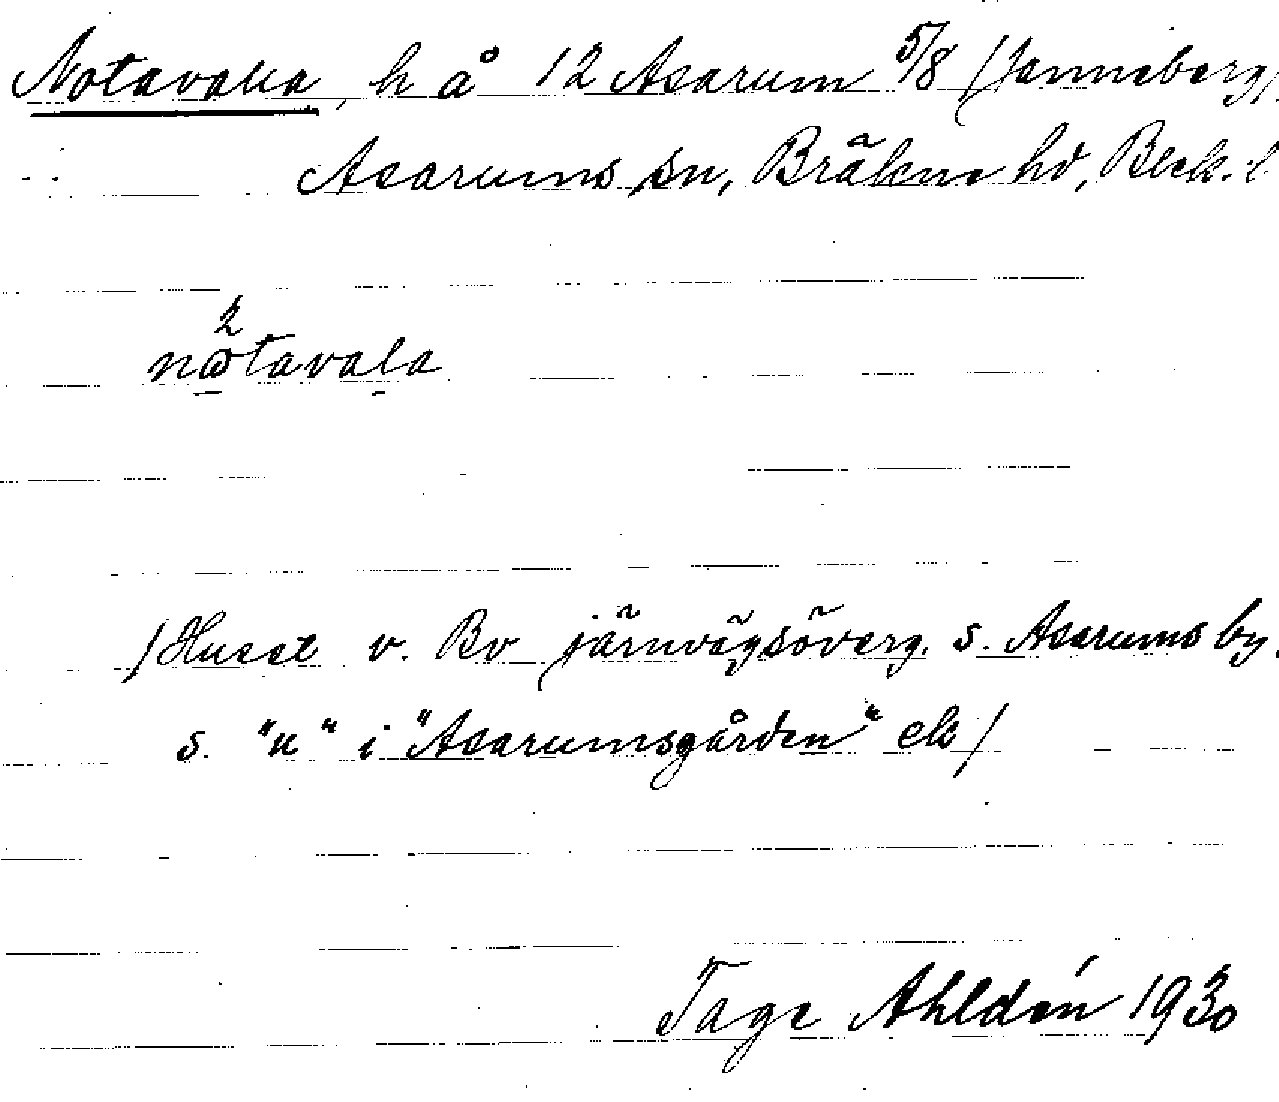 Notavalla, h å 12 Asarum 5/8 (Janneberg),
Asarums sn, Bräkne hd, Blek. l.
2
nωtavala
/Huset v. Bv järnvägsöverg. s. Asarums by.
s. "u" i "Asarumsgården" ek/
Tage Ahldén 1930